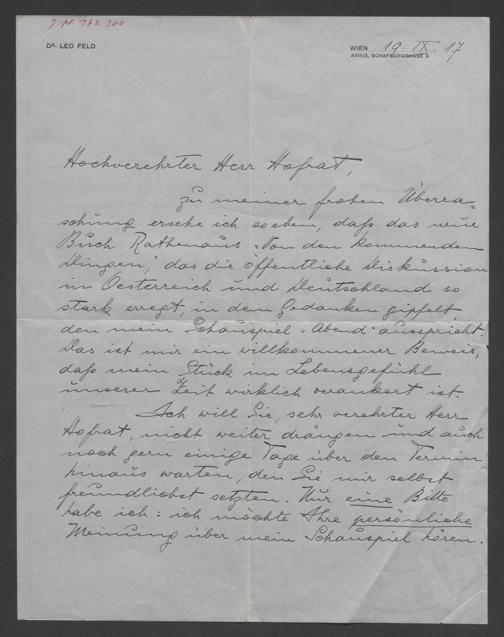 J. N. 173 300
DR. LEO FELD
WIEN 19. IX. 17
XVIII/3, SCHAFBERGGASSE 6
Hochverehrter Herr Hofrat,
zu meiner frohen Überra=
schung ersehe ich soeben, daß das neue
Buch Rathenaus „Von den kommenden
Dingen", das die öffentliche Diskussion
in Oesterreich und Deutschland so
stark erregt, in dem Gedanken gipfelt,
den mein Schauspiel „Abend" ausspricht.
Das ist mir ein willkommener Beweis,
daß mein Stück im Lebensgefühl
unserer Zeit wirklich verankert ist.
Ich will Sie, sehr verehrter Herr
Hofrat, nicht weiter drängen und auch
noch gern einige Tage über den Termin
hinaus warten, den Sie mir selbst
freundlichst setzten. Nur eine Bitte
habe ich: ich möchte Ihre persönliche
Meinung über mein Schauspiel hören.